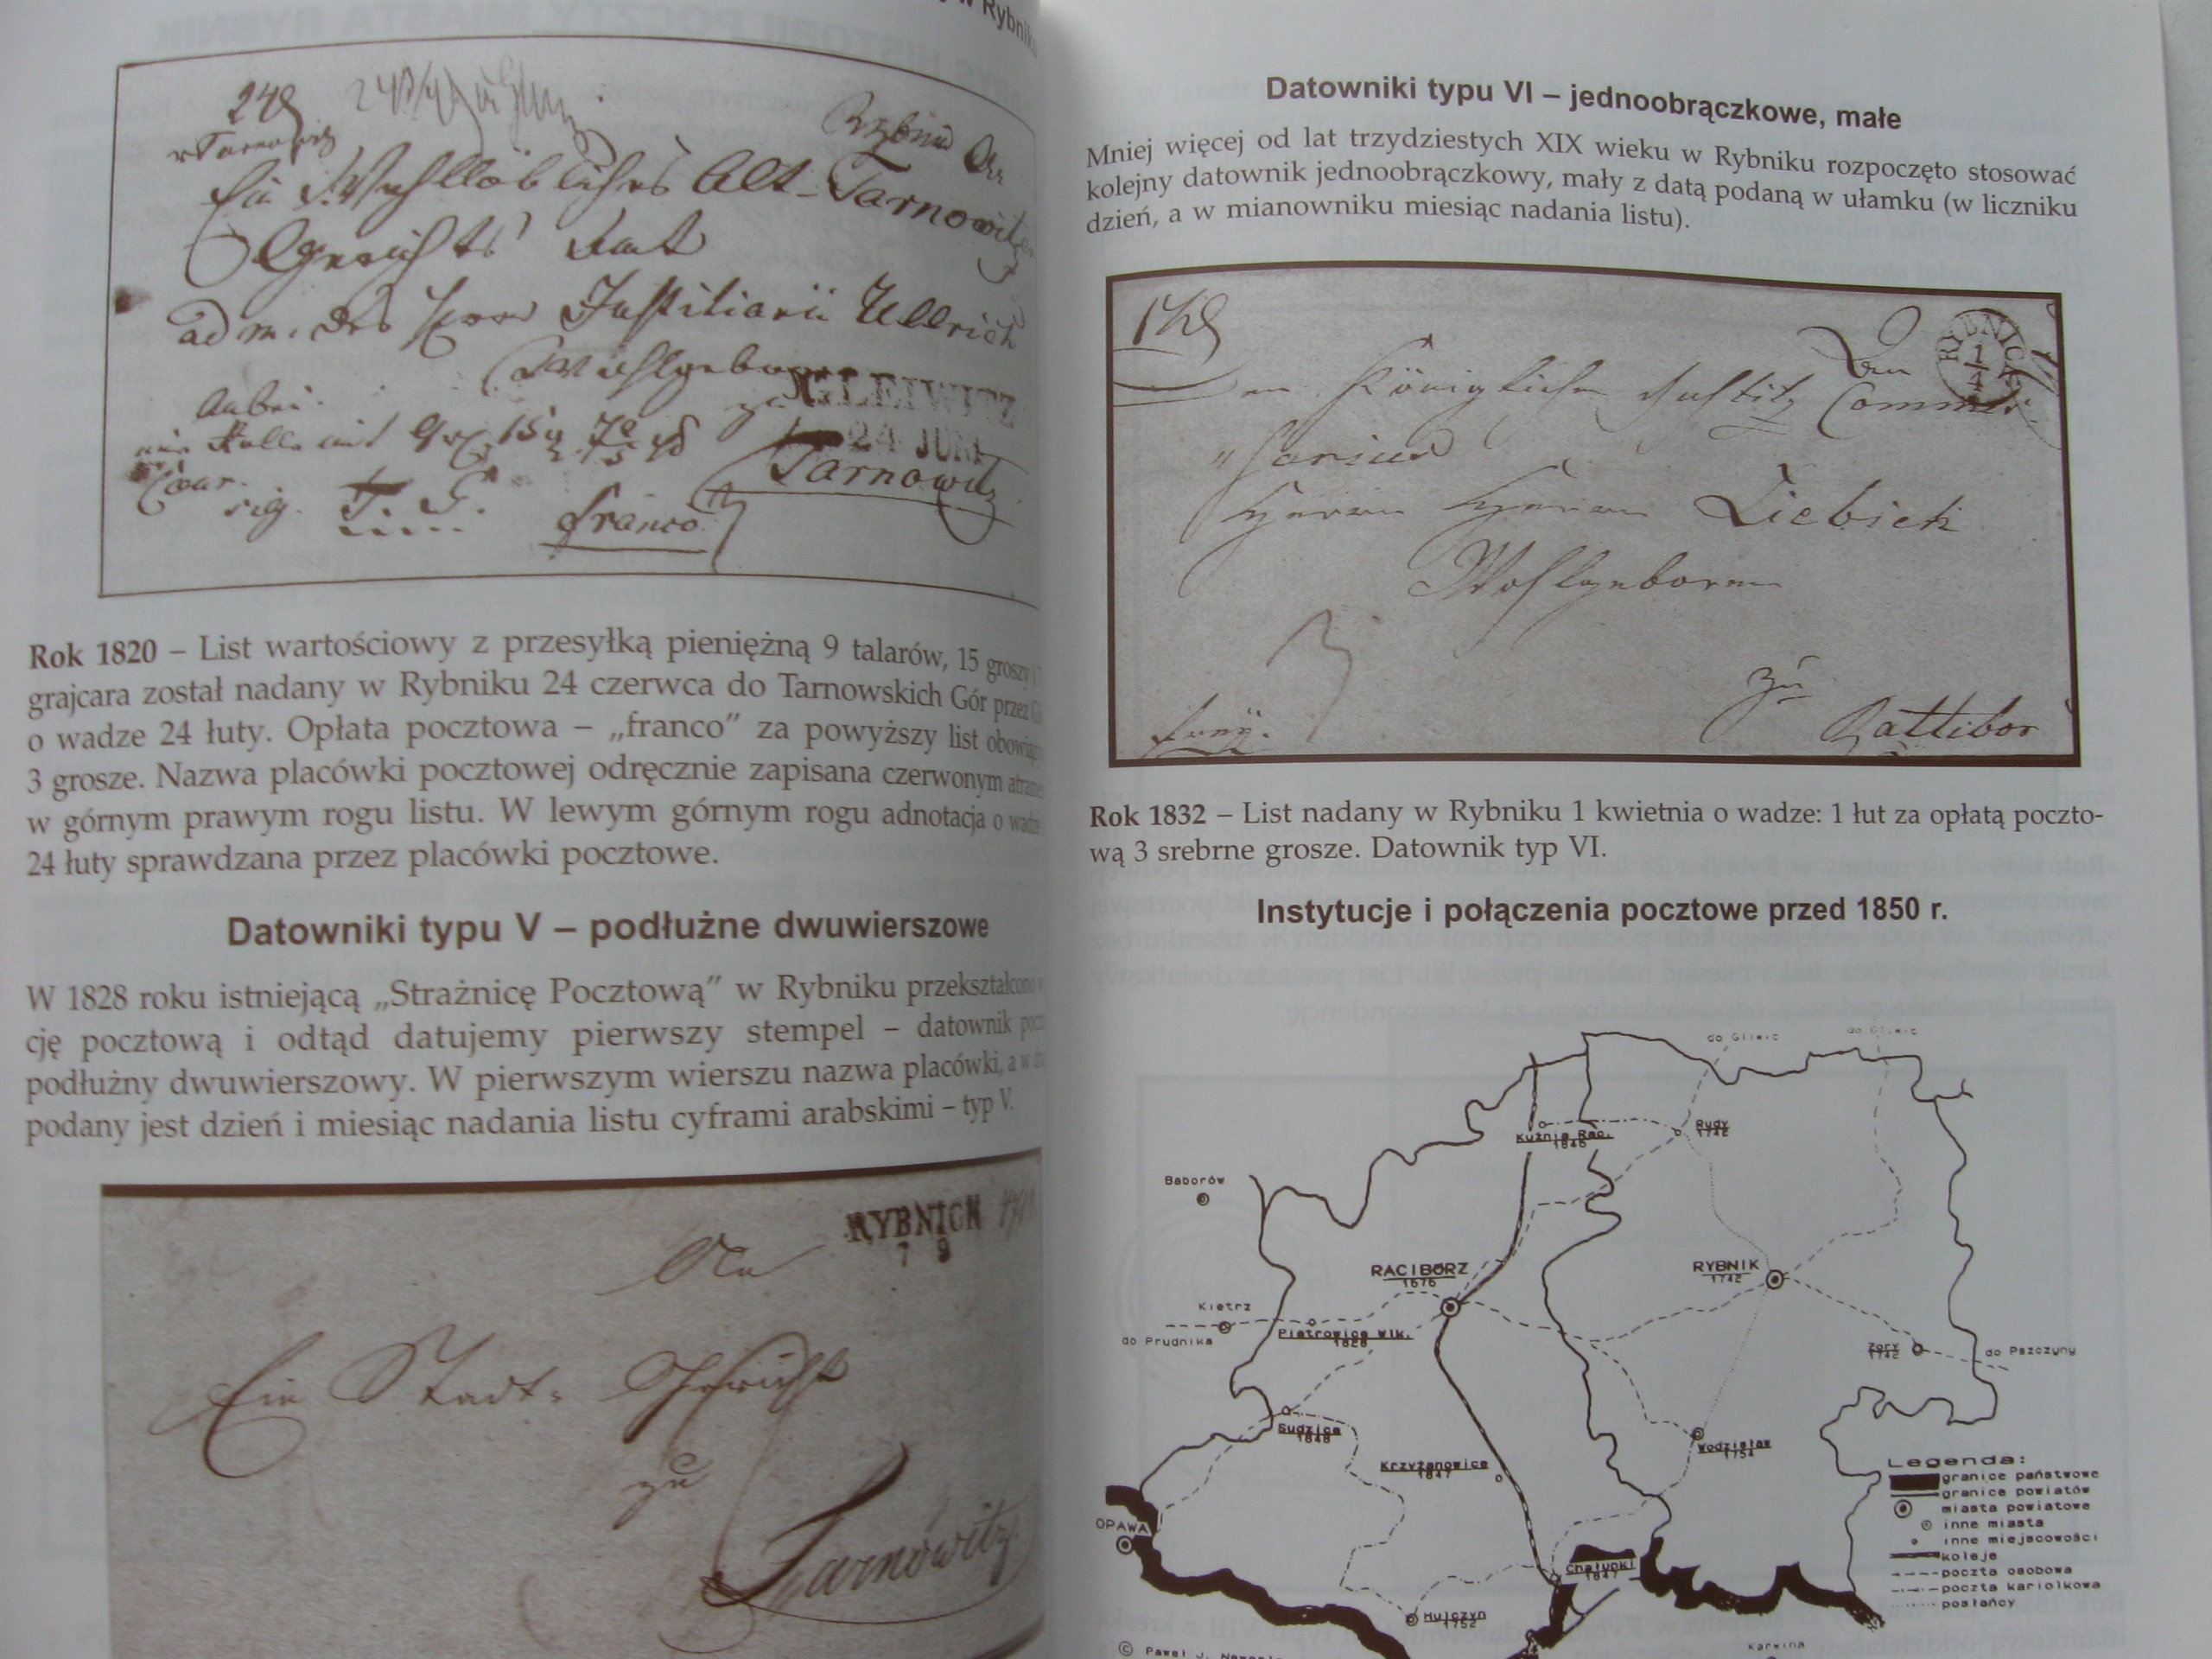 w Rybniku
248
Alt-Tarnowitzer
adm. des Justitiarii Ullrich
GLEIWITZ
24 JUNI
Tarnowitz
franco
Rok 1820 – List wartościowy z przesyłką pieniężną 9 talarów, 15 groszy i
grajcara został nadany w Rybniku 24 czerwca do Tarnowskich Gór przez
o wadze 24 łuty. Opłata pocztowa – „franco” za powyższy list
3 grosze. Nazwa placówki pocztowej odręcznie zapisana czerwonym
w górnym prawym rogu listu. W lewym górnym rogu adnotacja o wadze
24 łuty sprawdzana przez placówki pocztowe.
Datowniki typu V – podłużne dwuwierszowe
W 1828 roku istniejącą „Strażnicę Pocztową” w Rybniku przekształcono
cję pocztową i odtąd datujemy pierwszy stempel – datownik
podłużny dwuwierszowy. W pierwszym wierszu nazwa placówki, a w
podany jest dzień i miesiąc nadania listu cyframi arabskimi – typ V.
RYBNICK
7 9
An
Ein Stadt-Gericht
zu
Tarnowitz
Datowniki typu VI – jednoobrączkowe, małe
Mniej więcej od lat trzydziestych XIX wieku w Rybniku rozpoczęto stosować
kolejny datownik jednoobrączkowy, mały z datą podaną w ułamku (w liczniku
dzień, a w mianowniku miesiąc nadania listu).
RYBNICK
1
4
Königlichen Justitz Commis-
sarius
Herrn Herrn Liebich
Wohlgeboren
zu
Rattibor
Rok 1832 – List nadany w Rybniku 1 kwietnia o wadze: 1 łut za opłatą poczto-
wą 3 srebrne grosze. Datownik typ VI.
Instytucje i połączenia pocztowe przed 1850 r.
do Gliwic
do Gliwic
Kuźnia Rac.
1846
Rudy
1742
Baborów
RACIBÓRZ
1676
RYBNIK
1742
Kietrz
do Prudnika
Pietrowice Wlk.
1828
Żory
1742
do Pszczyny
Sudzice
1848
Krzyżanowice
1847
Wodzisław
1754
OPAWA
Chałupki
1847
Hulczyn
1752
Karwina
Legenda:
granice państwowe
granice powiatów
miasta powiatowe
inne miasta
inne miejscowości
koleje
poczta osobowa
poczta kariolkowa
posłańcy
© Paweł J.